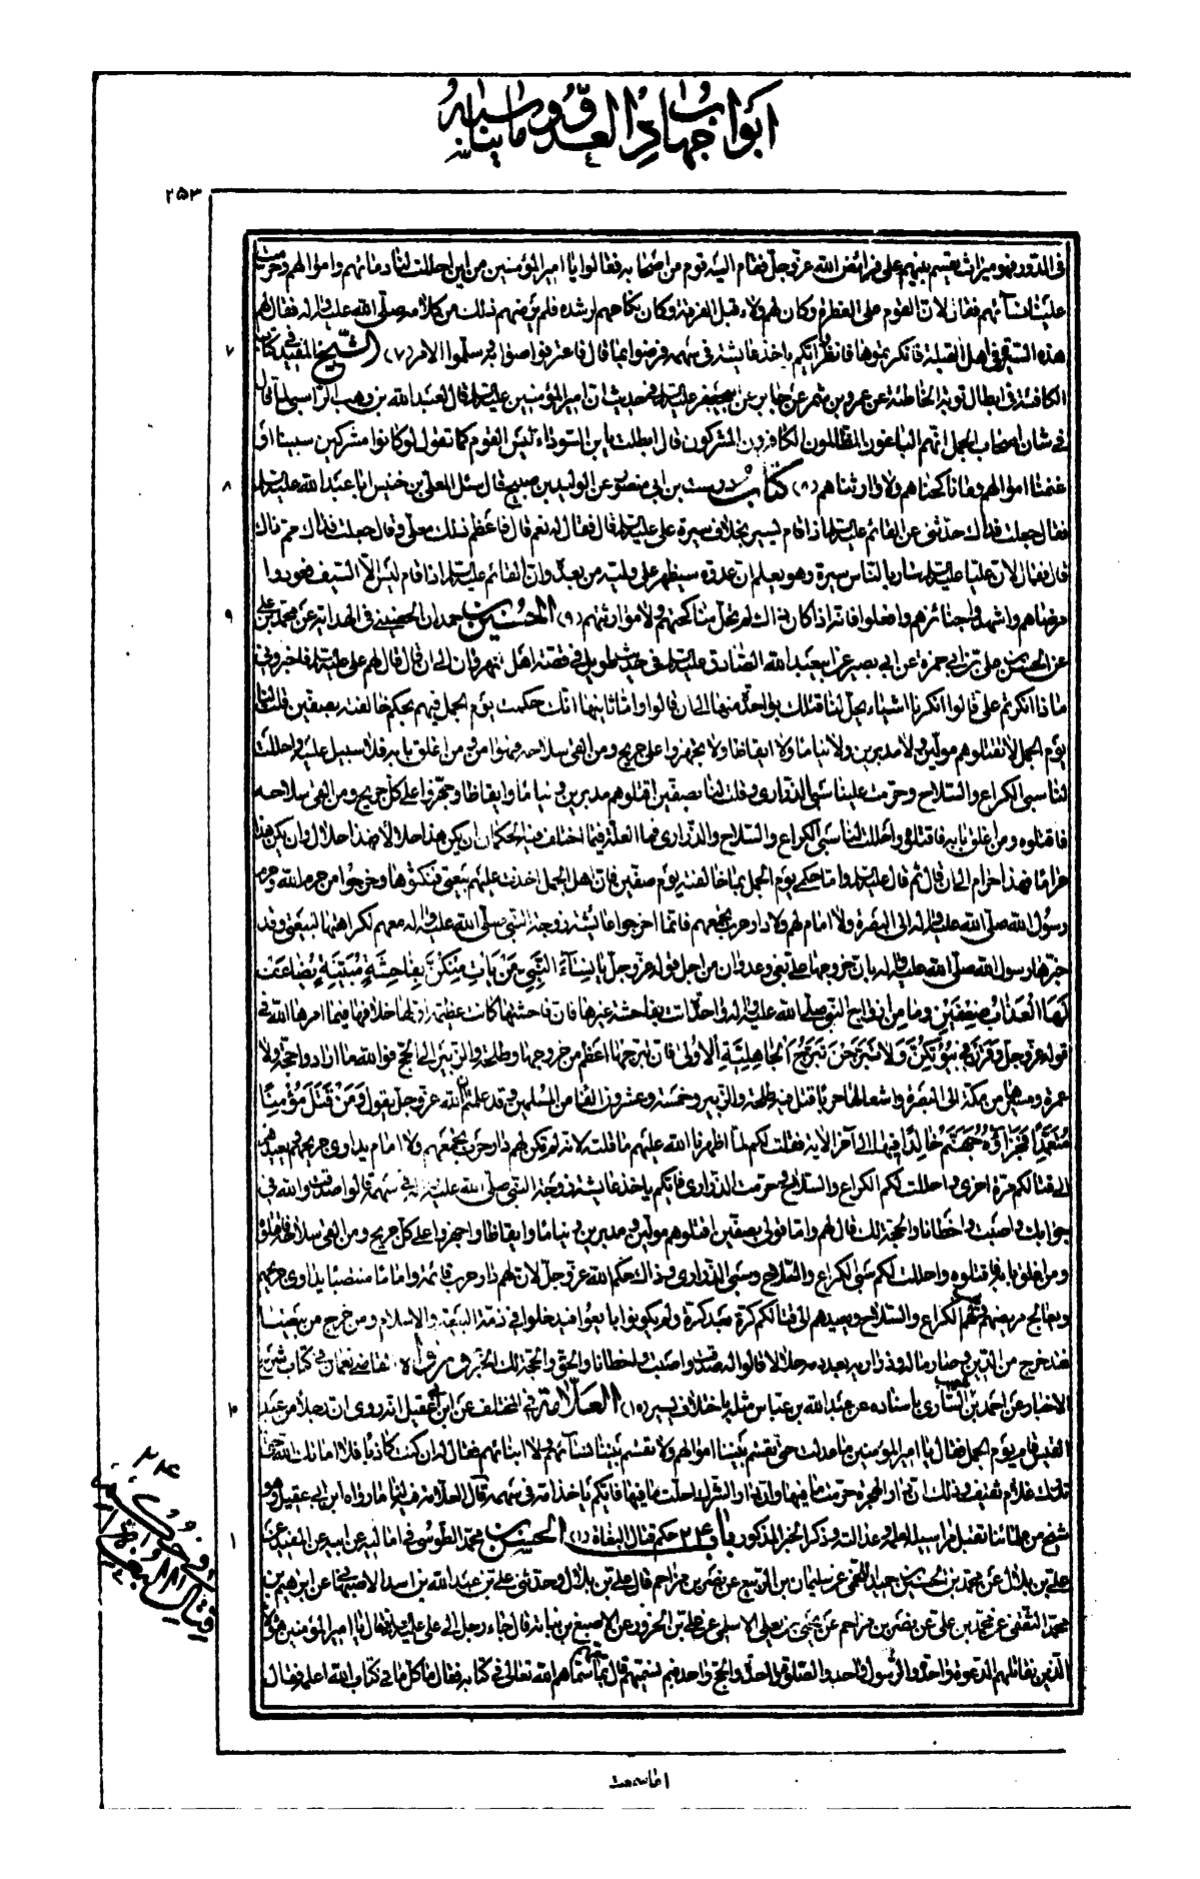 ابواب جهاد العدو وما يناسبه
۲۵۳
فى الدور فهو ميراث يقسم بينهم على فرائض الله عز وجل فقام اليه قوم من اصحابه فقالوا يا امير المؤمنين من اين احللت لنا دمائهم واموالهم وحرمت
علينا نسائهم فقال لان القوم على الفطرة وكان لهم ولاء قبل الفرقة وكان نكاحهم لرشده فلم يرضهم ذلك من كلامه صلى الله عليه واله فقال لهم
هذه السيرة فى اهل القبلة فانكرتموها فانظروا ايكم ياخذ عايشة فى سهمه فرضوا بما قال فاعترفوا صوابه وسلموا الامر (۷) الشيخ المفيد فى كتاب
۷
الكافئة فى ابطال توبة الخاطئة عن عمرو بن شمر عن جابر عن ابيجعفر عليه السلم فى حديث ان امير المؤمنين عليه السلم قال لعبد الله بن وهب الراسبى لما قال
فى شان اصحاب الجمل انهم الباغون الظالمون الكافرون المشركون قال ابطلت يا بن السوداء ليس القوم كما تقول لو كانوا مشركين سبينا او
غنمنا اموالهم وما ناكحناهم ولا وارثناهم (۸) كتاب درست بن ابى منصور عن الوليد بن صبيح قال سئل المعلى بن خنيس ابا عبد الله عليه السلم
۸
فقال جعلت فداك حدثنى عن القائم عليه السلم اذا قام يسير بخلاف سيرة على عليه السلم قال فقال له نعم قال فاعظم ذلك معلى وقال جعلت فداك مم ذاك
قال فقال لان عليا عليه السلم سار بالناس سيرة وهو يعلم ان عدوه سيظهر على وليه من بعده وان القائم عليه السلم اذا قام ليس الا السيف فعودوا
مرضاهم واشهدوا جنائزهم وافعلوا فانه اذا كان ذاك لم تحل مناكحتهم ولا موارثتهم (۹) الحسين بن حمدان الحضينى فى الهداية عن محمد بن على
۹
عن الحسن بن على بن ابى حمزة عن ابى بصير عن ابيعبد الله الصادق عليه السلم فى حديث طويل فى قصة اهل النهروان الى ان قال قال لهم على عليه السلم فاخبرونى
ماذا انكرتم على قالوا انكرنا اشياء يحل لنا قتلك بواحدة منها الى ان قالوا واما ثانيها انك حكمت يوم الجمل فيهم بحكم خالفته بصفين قلت لنا
يوم الجمل لا تقتلوهم مولين ولا مدبرين ولا نياما ولا ايقاظا ولا تجهزوا على جريح ومن القى سلاحه فهو امن ومن اغلق بابه فلا سبيل عليه واحللت
لنا سبى الكراع والسلاح وحرمت علينا سبى الذرارى وقلت لنا بصفين اقتلوهم مدبرين ونياما وايقاظا وجهزوا على كل جريح ومن القى سلاحه
فاقتلوه ومن اغلق بابه فاقتلوه واحللت لنا سبى الكراع والسلاح والذرارى فما العلة فيما اختلف فيه الحكمان ان يكن هذا حلالا فهذا حلال وان يكن هذا
حراما فهذا حرام الى ان قال ثم قال عليه السلم واما حكمى يوم الجمل بما خالفته يوم صفين فان اهل الجمل اخذت عليهم بيعتى فنكثوها وخرجوا من حرم الله وحرم
رسول الله صلى الله عليه واله الى البصرة ولا امام لهم ولا دار حرب تجمعهم فانما اخرجوا عائشة زوجة النبى صلى الله عليه واله معهم لكراهتها لبيعتى وقد
خبرها رسول الله صلى الله عليه واله بان خروجها على بغى وعدوان من اجل قوله عز وجل يا نساء النبى من يات منكن بفاحشة مبينة يضاعف
لها العذاب ضعفين وما من ازواج النبى صلى الله عليه واله واحدة اتت بفاحشة غيرها فان فاحشتها كانت عظيمة اولها خلافها فيما امرها الله فى
قوله عز وجل وقرن فى بيوتكن ولا تبرجن تبرج الجاهلية الاولى فان تبرجها اعظم من خروجها وطلحة والزبير الى الحج فوالله ما ارادوا حجة ولا
عمرة ومسيرها من مكة الى البصرة واشعالها حربا قتل فيه طلحة والزبير وخمسة وعشرون الفا من المسلمين وقد علمتم ان الله عز وجل يقول ومن قتل مؤمنا
متعمدا فجزاؤه جهنم خالدا فيها الى آخر الاية فقلت لكم لما اظهرنا الله عليهم ما قلته لانه لم تكن لهم دار حرب تجمعهم ولا امام يداوى جريحهم ويعيدهم
الى قتالكم مرة اخرى واحللت لكم الكراع والسلاح وحرمت الذرارى فايكم ياخذ عايشة زوجة النبى صلى الله عليه واله فى سهمه قالوا صدقت والله فى
جوابك واصبت واخطانا والحجة لك قال لهم واما قولى بصفين اقتلوهم مولين ومدبرين ونياما وايقاظا واجهزوا على كل جريح ومن القى سلاحه فاقتلوه
ومن اغلق بابه فاقتلوه واحللت لكم سبى الكراع والسلاح وسبى الذرارى وذاك حكم الله عز وجل لان لهم دار حرب قائمة واماما منتصبا يداوى جريحهم
ويعالج مريضهم ويهب لهم الكراع والسلاح ويعيدهم الى قتالكم كرة بعد كرة ولم يكونوا بايعوا فيدخلوا فى ذمة البيعة والاسلام ومن خرج من بيعتنا
فقد خرج من الدين وصار ماله وذراريه بعد دمه حلالا قالوا له صدقت واصبت واخطانا والحق والحجة لك الخبر ورواه القاضى نعمان فى كتاب شرح
الاخبار عن احمد بن شعيب النسائى باسناده عن عبد الله بن عباس مثله باختلاف يسير (۱۰) العلامة فى المختلف عن ابن ابى عقيل انه روى ان رجلا من عبد
۱۰
القيس قام يوم الجمل فقال يا امير المؤمنين ما عدلت حين تقسم بيننا اموالهم ولا تقسم بيننا نسائهم ولا ابنائهم فقال له ان كنت كاذبا فلا اماتك الله حتى
تدرك غلام ثقيف وذلك ان دار الهجرة حرمت ما فيها وان دار الشرك احلت ما فيها فايكم ياخذ امه فى سهمه قال العلامة فى لنا ما رواه ابن ابى عقيل وهو
شيخ من علمائنا تقبل مراسيله لعلمه وعدالته وذكر الخبر المذكور باب ۲۴ حكم قتال البغاة (۱) الحسن بن محمد الطوسى فى اماليه عن ابيه عن المفيد عن
۱
۲۴
فى حكم قتال البغاة
على بن بلال عن محمد بن الحسين بن حميد اللخمى عن سليمان بن الربيع عن نصر بن مزاحم قال على بن بلال وحدثنى على بن عبد الله بن اسد الاصبهانى عن ابراهيم بن
محمد الثقفى عن محمد بن على عن نصر بن مزاحم عن يحيى بن يعلى الاسلمى عن على بن الحزور عن الاصبغ بن نباتة قال جاء رجل الى على عليه السلم فقال يا امير المؤمنين هؤلاء
الذين نقاتلهم الدعوة واحدة والرسول واحد والصلوة واحدة والحج واحد فبم نسميهم قال بما سماهم الله تعالى فى كتابه فقال ما كل ما فى كتاب الله اعلمه فقال